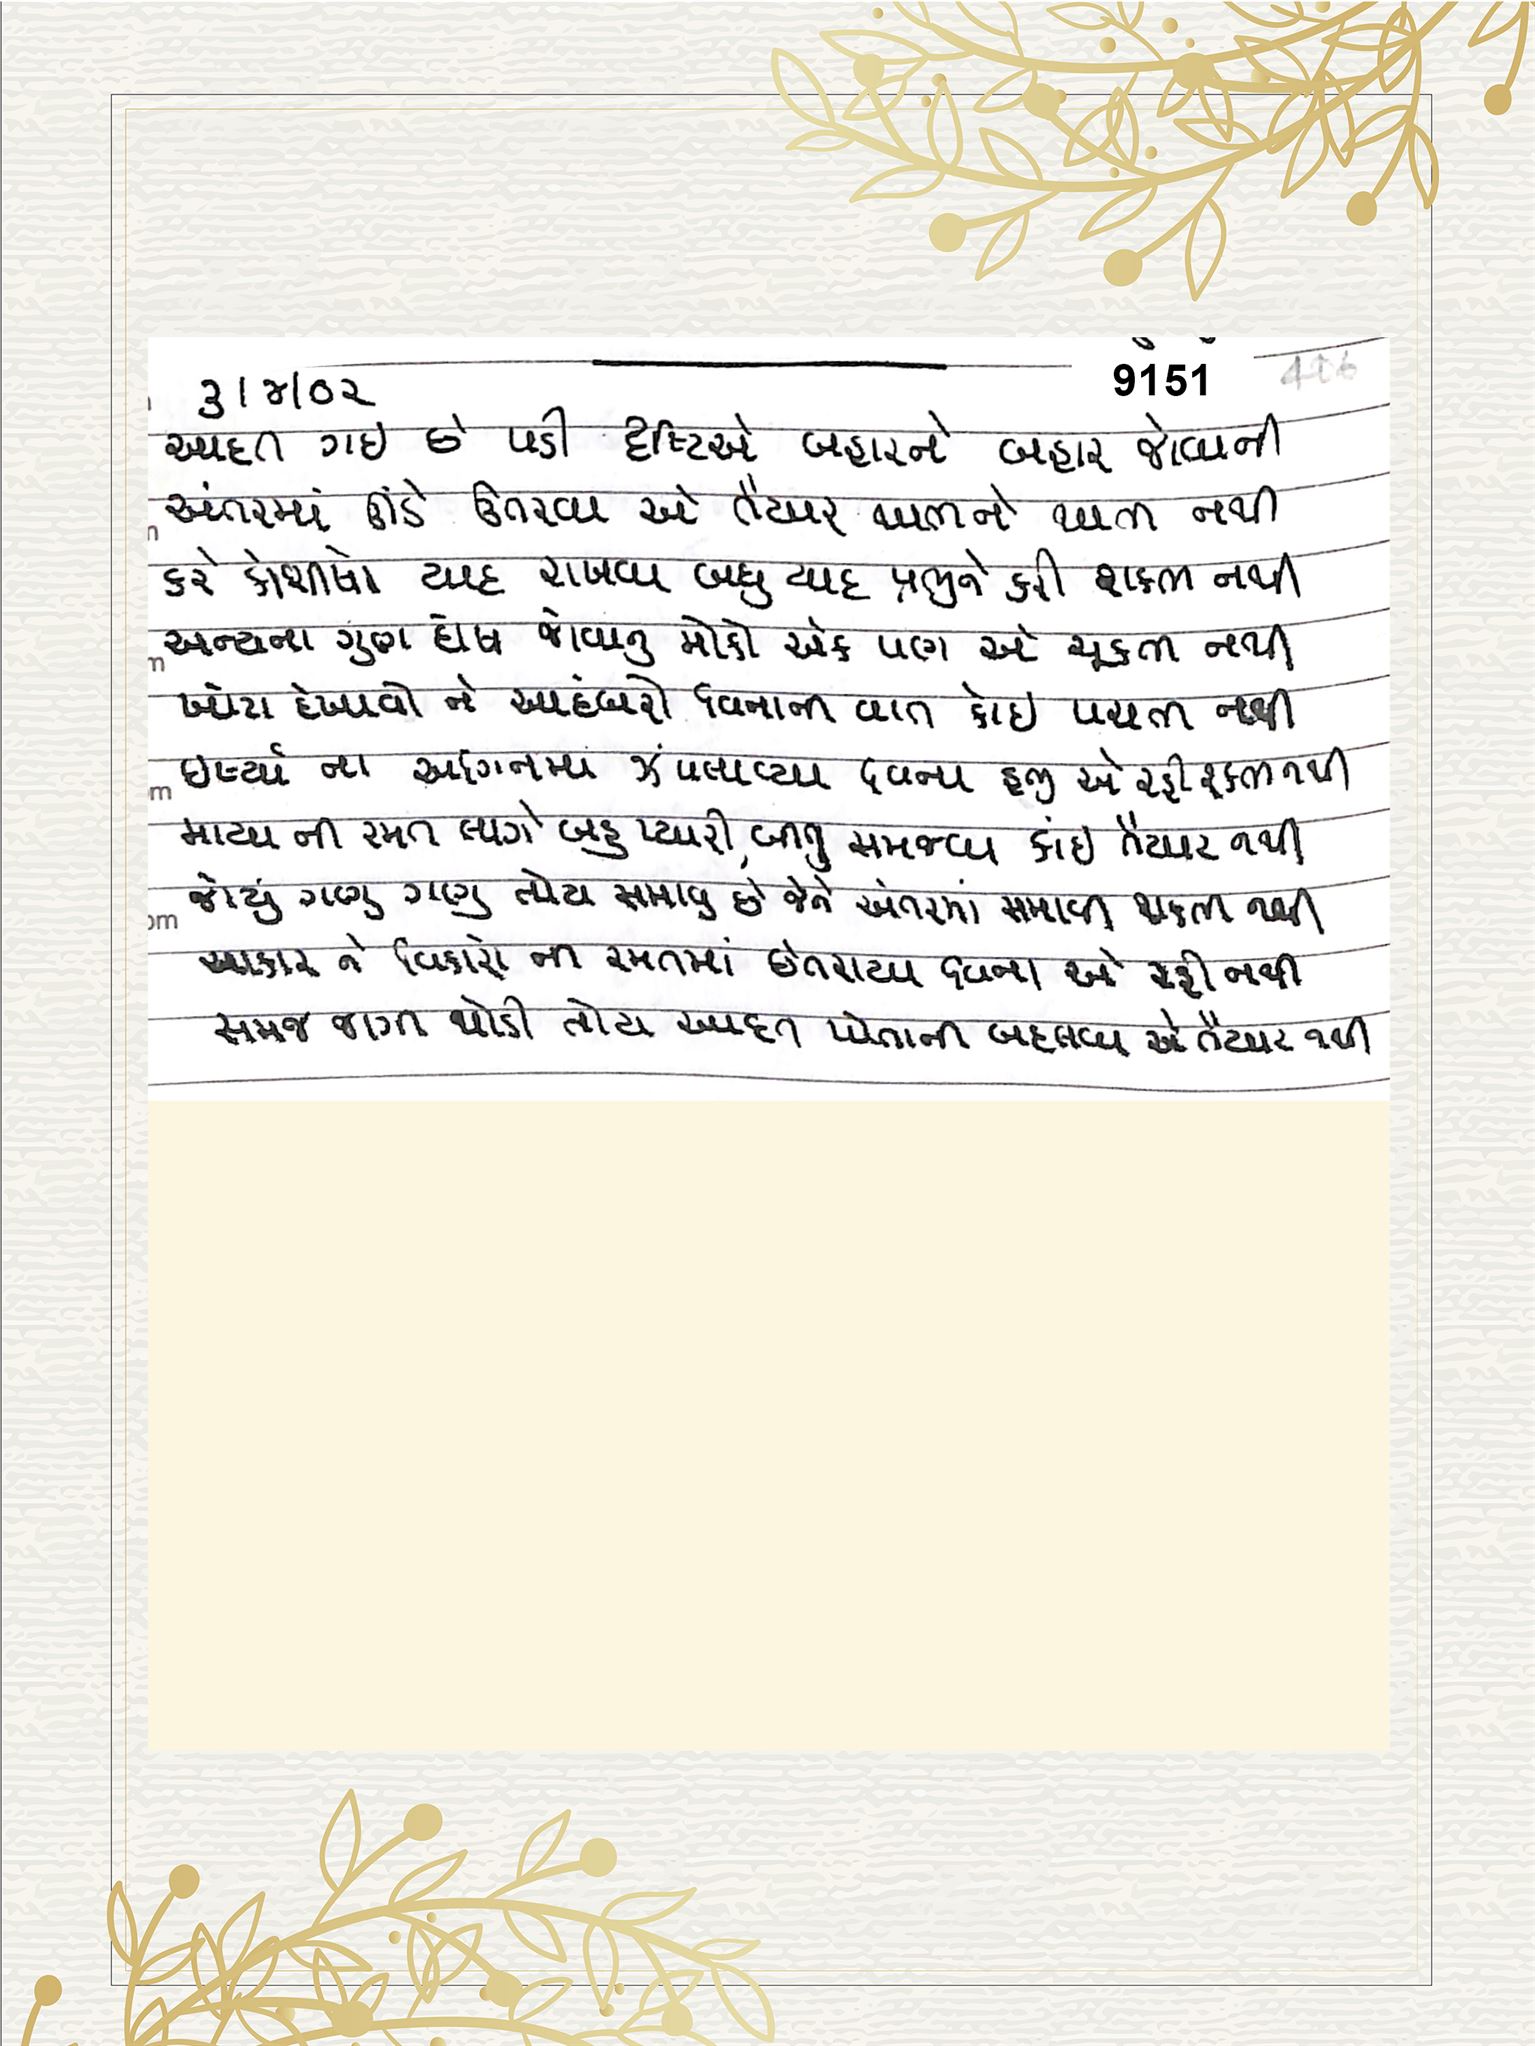 9151
૩/૪/૦૨
આદત ગઇ છે પડી દૃષ્ટિએ બહારને બહાર જોવાની
અંતરમાં ઊંડે ઉતરવા એ તૈયાર થાતાને થાતા નથી
કરે કોશીષો યાદ રાખવા બધુ યાદ પ્રભુને કરી શકતા નથી
અન્યના ગુણ દોષ જોવાનુ મોકો એક પણ એ ચૂકતા નથી
ખોટા દેખાવો ને આડંબરો વિનાની વાત કોઇ પચતી નથી
ઇર્ષ્યા ના અગ્નિમા ઝંપલાવ્યા વિના હજી એ રહી શકતા નથી
માયા ની રમત લાગે બહુ પ્યારી, બીજુ સમજવા કાંઇ તૈયાર નથી
જોયું ગણુ ગણુ તોય સમાવુ છે જેને અંતરમાં સમાવી શકતા નથી
આકાર ને વિકારો ની રમતમાં છેતરાયા વિના એ રહી નથી
સમજ જાગી થોડી તોય આદત પોતાની બદલવા એ તૈયાર નથી